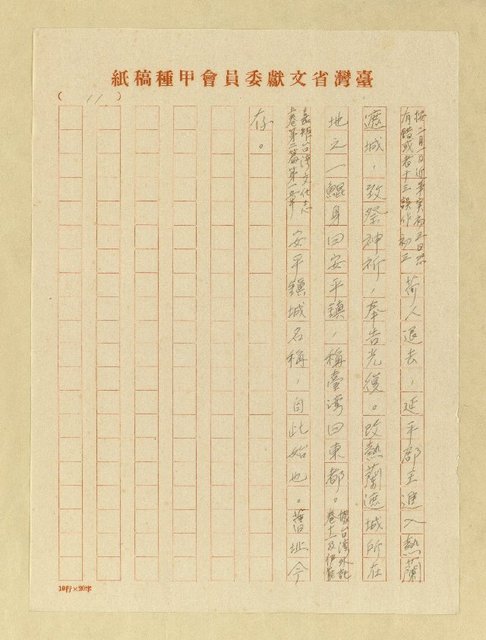 臺灣省文獻委員會甲種稿紙
( 11 )
荷人退去,延平郡王進入熱蘭
遮城,致祭神祈,奉告光復。改熱蘭遮城所在
地之一鯤身曰安平鎮,稱臺灣曰東都。據台灣外記
安平鎮城名稱,自此始也。舊址今
存。
10行×20字